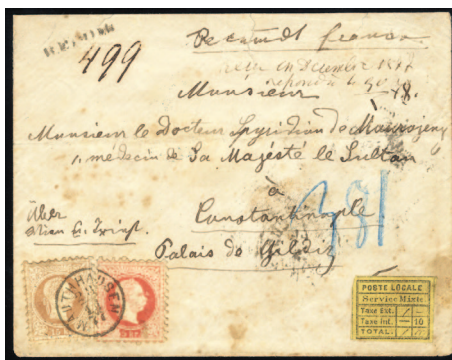 RECOM
499
Recomdt franco.
reçu en Decembre 1877
répondu le
Monsieur
Monsieur le Docteur Spyridion de Mavrojeny
médecin de Sa Majésté le Sultan
à
Constantinople
Palais de Yildiz
Über
Wien & Triest.
381
MAUTHHAUSEN
POSTE LOCALE
Service Mixte
Taxe Ext.
Taxe Int. — 10
TOTAL.